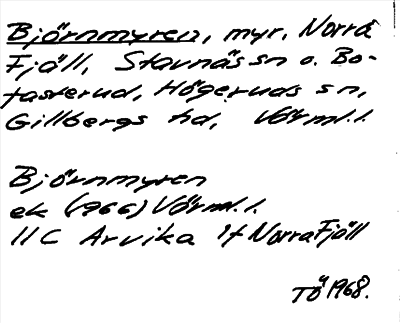 Björnmyren, myr, Norra
Fjäll, Stavnäs sn o. Bo-
tasterud, Högeruds sn,
Gillbergs hd, Värml.l.
Björnmyren
ek (1966) Värml.l.
11C Arvika 1f Norra Fjäll
TÖ 1968.